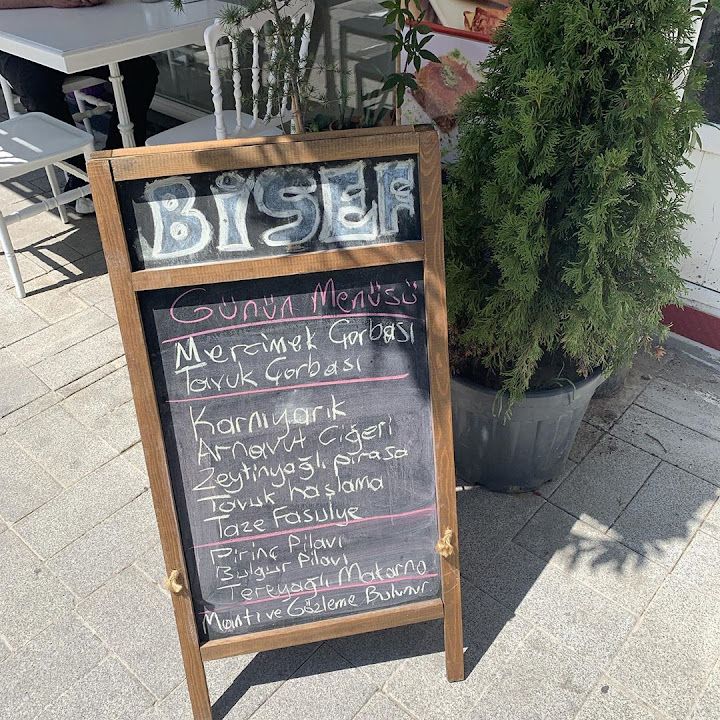 BİSEF
Günün Menüsü
Mercimek Çorbası
Tavuk Çorbası
Karnıyarık
Arnavut Ciğeri
Zeytinyağlı pırasa
Tavuk haşlama
Taze Fasulye
Pirinç Pilavı
Bulgur Pilavı
Tereyağlı Makarna
Mantı ve Gözleme Bulunur